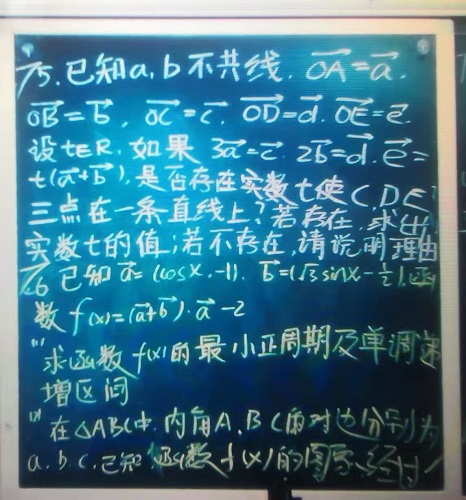 15.已知a,b不共线.OA=a.
OB=b,OC=c.OD=d.OE=e.
设t∈R.如果3a=c.2b=d.e=
t(a+b).是否存在实数t使C,D,E
三点在一条直线上?若存在,求出
实数t的值;若不存在,请说明理由
16已知a=(cosx,-1).b=(√3sinx-1/2),函
数f(x)=(a+b)·a-2
(1)求函数f(x)的最小正周期及单调递
增区间
(2)在△ABC中.内角A.B.C的对边分别为
a.b.c.已知函数f(x)的图象经过